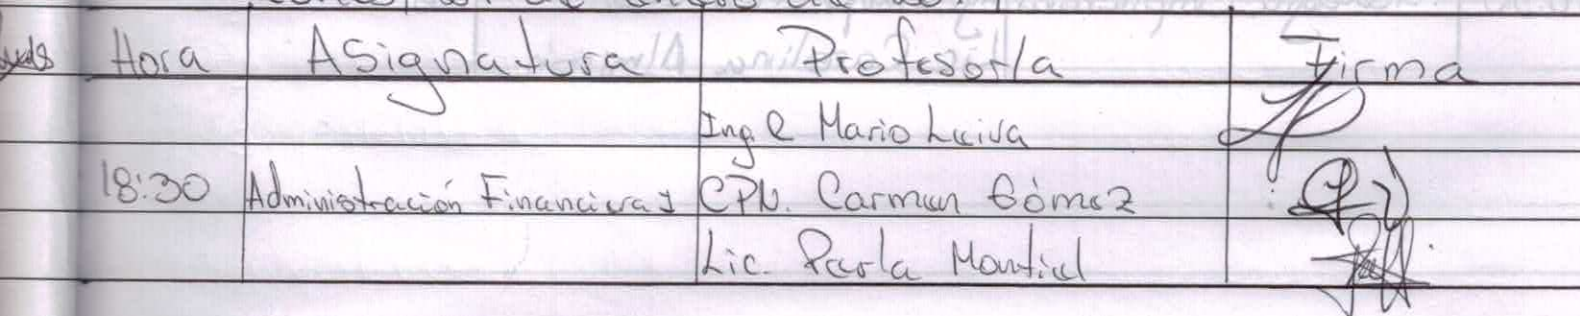 Hora Asignatura Profesor/a Firma
Ing. R Mario Leiva
18:30 Administración Financiera I CPN. Carmen Gómez
Lic. Perla Montiel